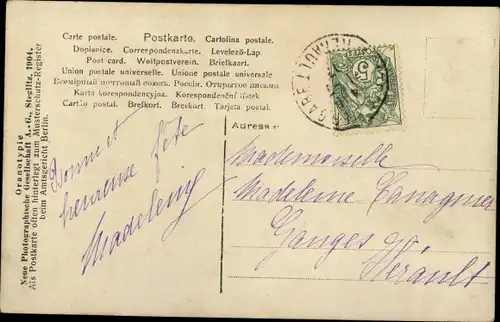 Carte postale. Postkarte. Cartolina postale.
Dopisnice. Correspondenzkarte. Levelező-Lap.
Post card. Weltpostverein. Briefkaart.
Union postale universelle. Unione postale universale
Всемірный почтовый союзъ. Россія. Открытое письмо
Karta korespondencyjna. Korespondenční lístek
Cartão postal. Brefkort. Brevkort. Tarjeta postal.
Oranotypie
Neue Photographische Gesellschaft A.-G., Steglitz, 1904.
Als Postkarte offen hinterlegt zum Musterschutz-Register
beim Amtsgericht Berlin.
Bonne et
heureuse fête
Madeleine
Adresse
HERAULT
5
Mademoiselle
Madeleine
Ganges
Hérault